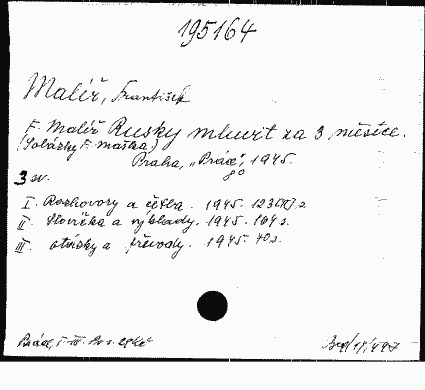 195164
Malíř, František
F. Malíř Rusky mluvit za 3 měsíce.
(Sobázky F. maška.)
Praha, „Práce“, 1945.
8°
3 sv.
I. Rozhovory a četba. 1945. 123 s.
II. Slovíčka a výklady. 1945. 164 s.
III. otázky a převody. 1945. 70 s.
Práce, I-III.